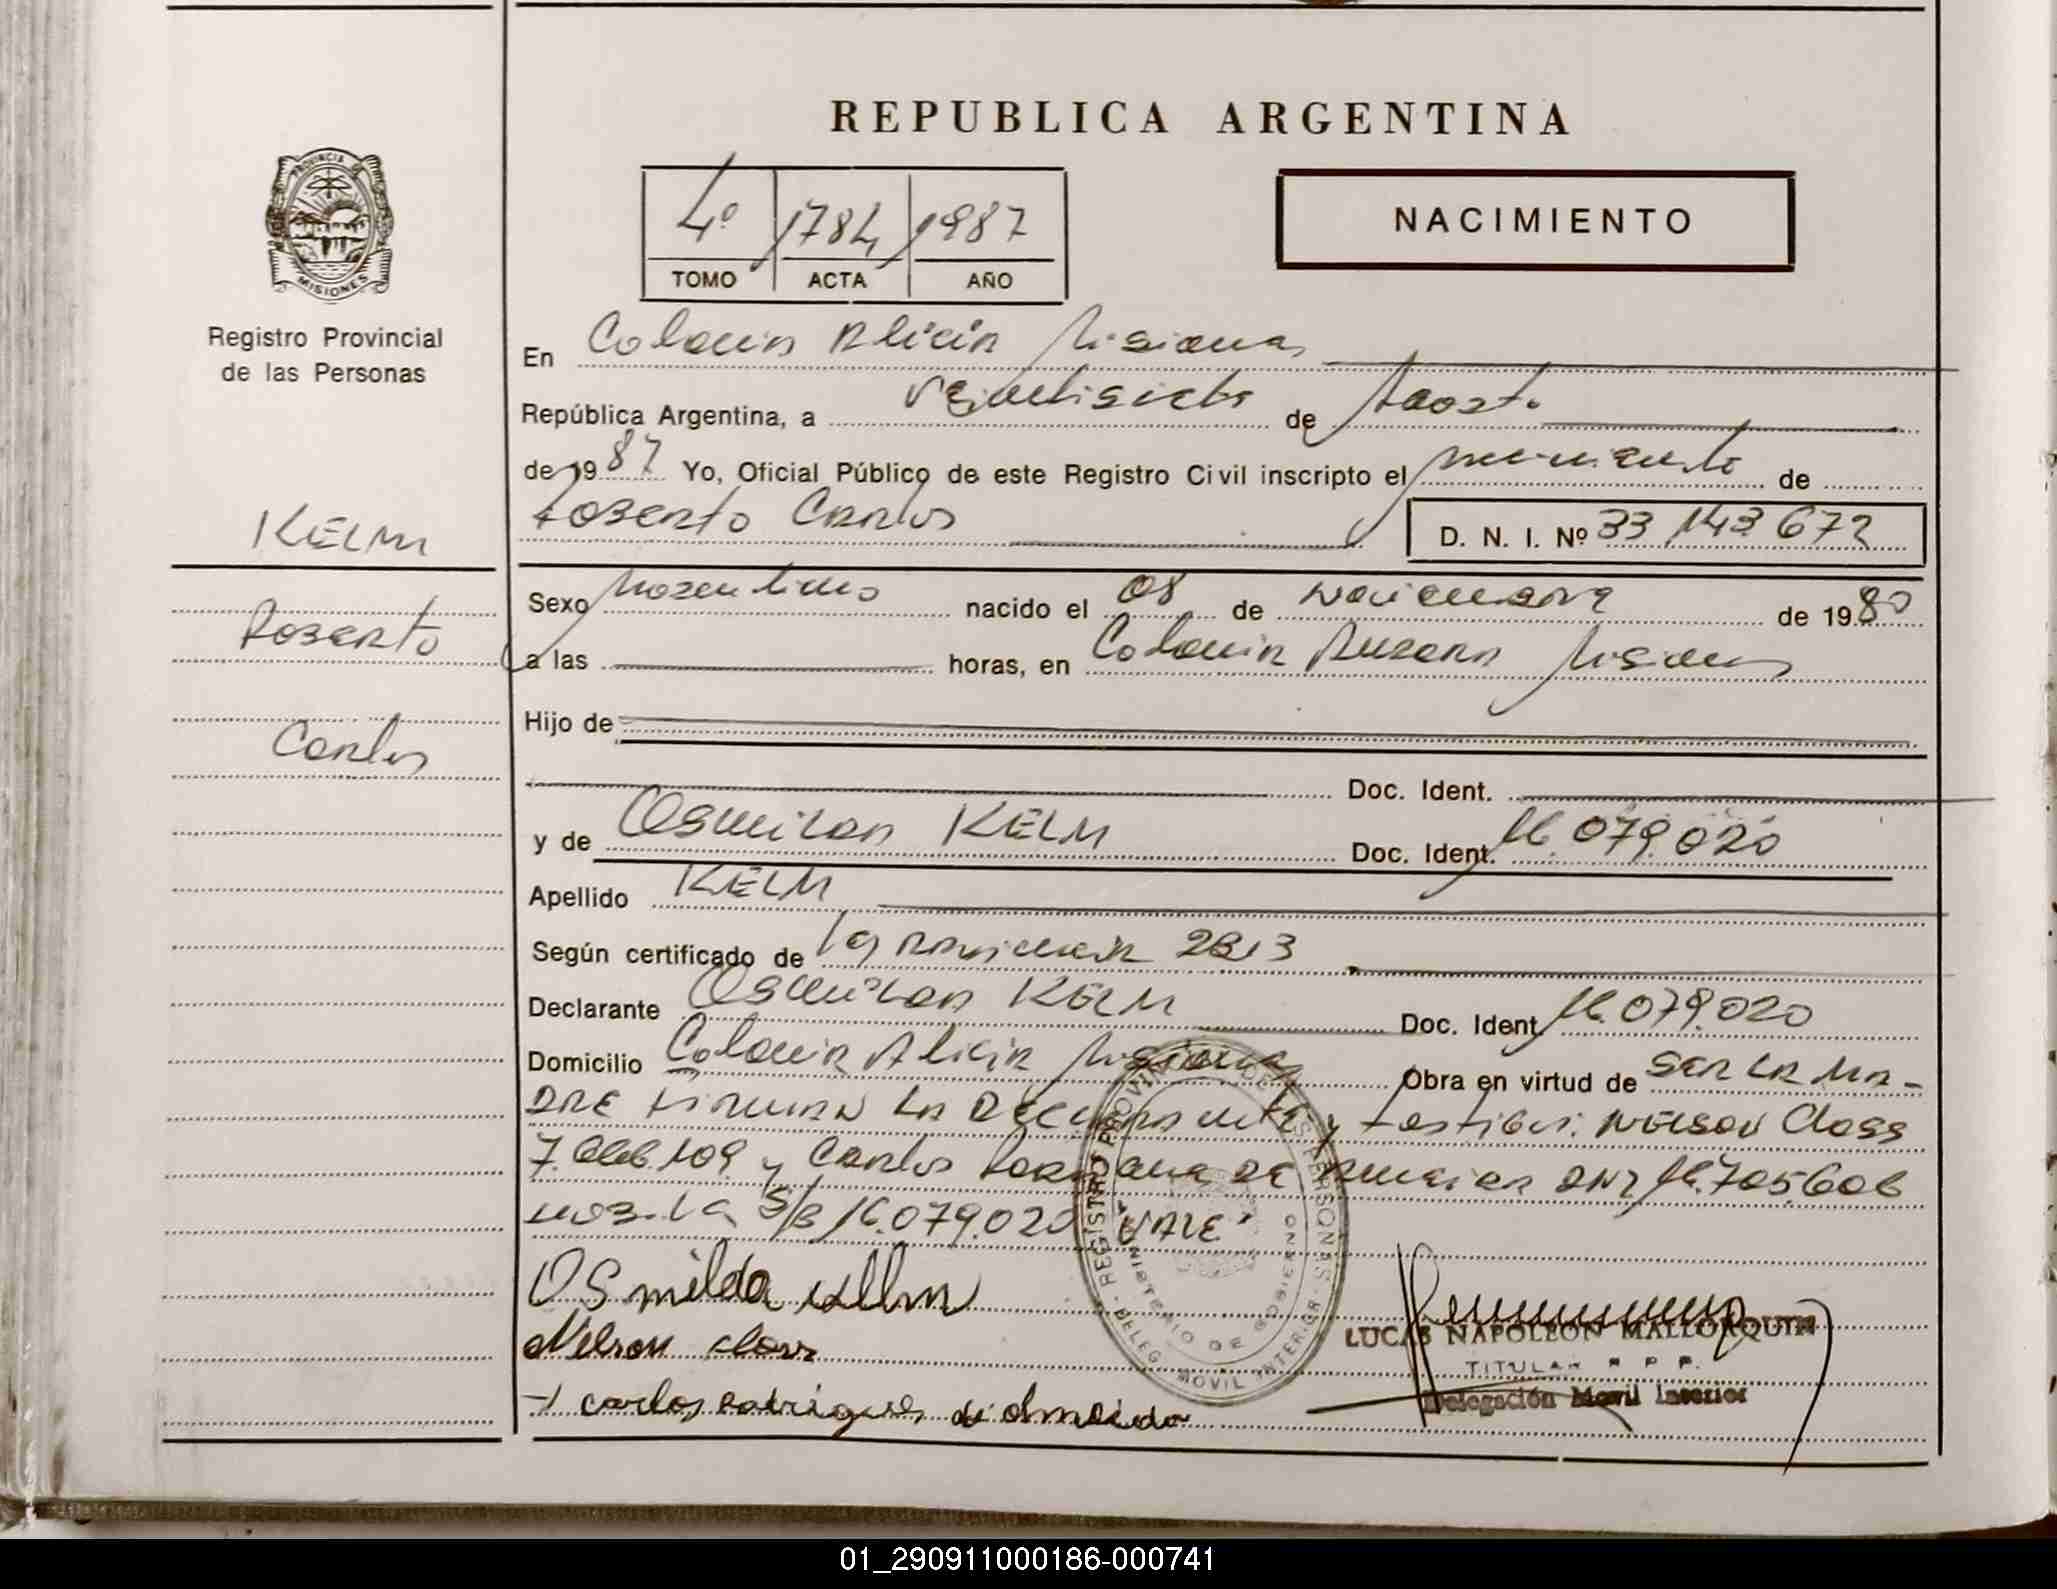 REPUBLICA ARGENTINA
PROVINCIA DE
MISIONES
Registro Provincial
de las Personas
4º 1784 1987
TOMO ACTA AÑO
NACIMIENTO
En Colonia Alicia Misiones
República Argentina, a veintisiete de Agosto
de 1987 Yo, Oficial Público de este Registro Civil inscripto el nacimiento de
Roberto Carlos
D. N. I. Nº 33 143 672
KELM
Roberto
Carlos
Sexo masculino nacido el 08 de de 1980
a las horas, en Colonia Aurora Misiones
Hijo de
Doc. Ident.
y de Osmilda KELM Doc. Ident. 16.079.020
Apellido KELM
Según certificado de 2813
Declarante Osmilda KELM Doc. Ident. 16.079.020
Domicilio Colonia Alicia Misiones Obra en virtud de ser la ma-
dre firman la declarante y testigos: Nelson Closs
y Carlos de DNI 16.705606
S/B 16.079.020 "VALE"
Osmilda
Nelson Closs
carlos rodrigues de olmeida
REGISTRO PROVINCIAL DE LAS PERSONAS
MINISTERIO DE GOBIERNO
DELEG. MOVIL INTERIOR
LUCAS NAPOLEON MALLORQUIN
TITULAR R P P.
Delegación Movil Interior
01_290911000186-000741